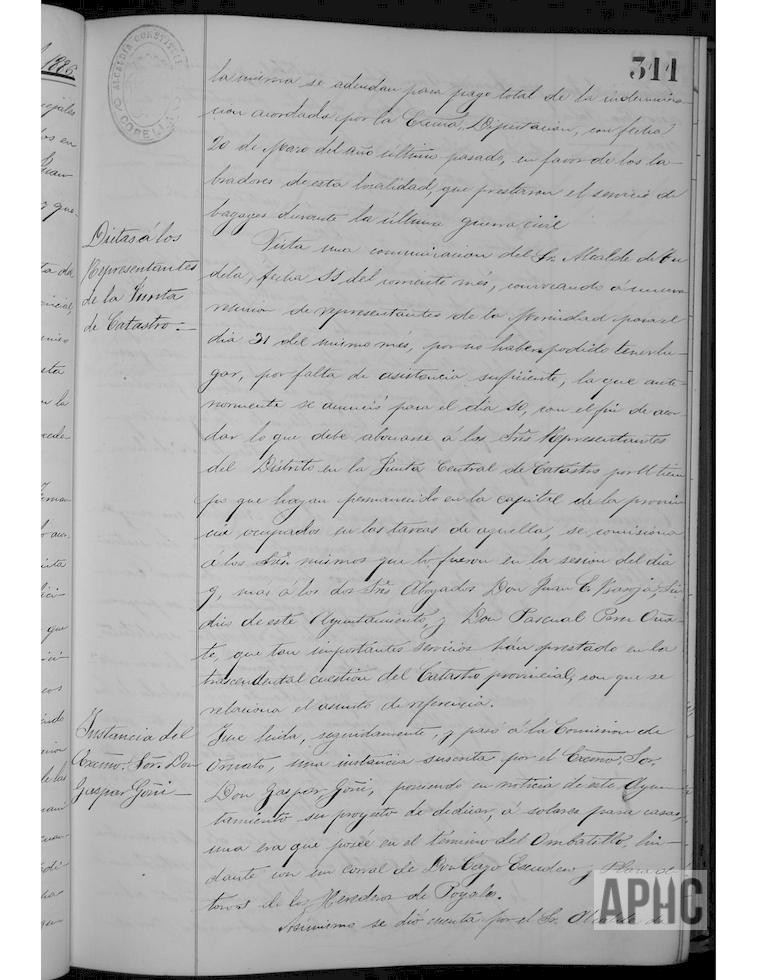 311
ALCALDÍA CONSTITUCIONAL
CORELLA
1886.
la misma se adeudan para pago total de la indemniza-
cion acordada por la Excma. Diputacion, con fecha
20 de Marzo del año último pasado, en favor de los la-
bradores de esta localidad, que prestaron el servicio de
bagages durante la última guerra civil
Dietas á los
Representantes
de la Junta
de Catastro.=
Vista una comunicacion del Sr. Alcalde de Tu
dela, fecha 11 del corriente més, convocando á nueva
reunion de representantes de la Merindad para el
dia 31 del mismo més, por no haber podido tener lu-
gar, por falta de asistencia suficiente, la que ante-
riormente se anunció para el dia 10, con el fin de acor
dar lo que debe abonarse á los Sres. Representantes
del Distrito en la Junta Central de Catastro por el tiem
po que hayan permanecido en la capital de la provin
cia ocupados en las tareas de aquella, se comisiona
á los Sres. mismos que lo fueron en la sesion del dia
9, más á los dos Sres. Abogados Don Juan C. Sín
dico de este Ayuntamiento, y Don Pascual Oña-
te, que tan importantes servicios han prestado en la
trascendental cuestion del Catastro provincial, con que se
relaciona el asunto de referencia.
Instancia del
Excmo. Sor. Don
Gaspar Goñi-
Fué leida, seguidamente, y pasó á la Comision de
Ornato, una instancia suscrita por el Excmo. Sor.
Don Gaspar Goñi, poniendo en noticia de este Ayun-
tamiento su proyecto de dedicar, á solares para casas,
una era que posée en el término del Ombatillo, lin-
dante con un corral de Don Cayo Escudero y Plaza de
toros de los Herederos de Poyales.
Asimismo se dió cuenta por el Sr. Alcalde de
APHC